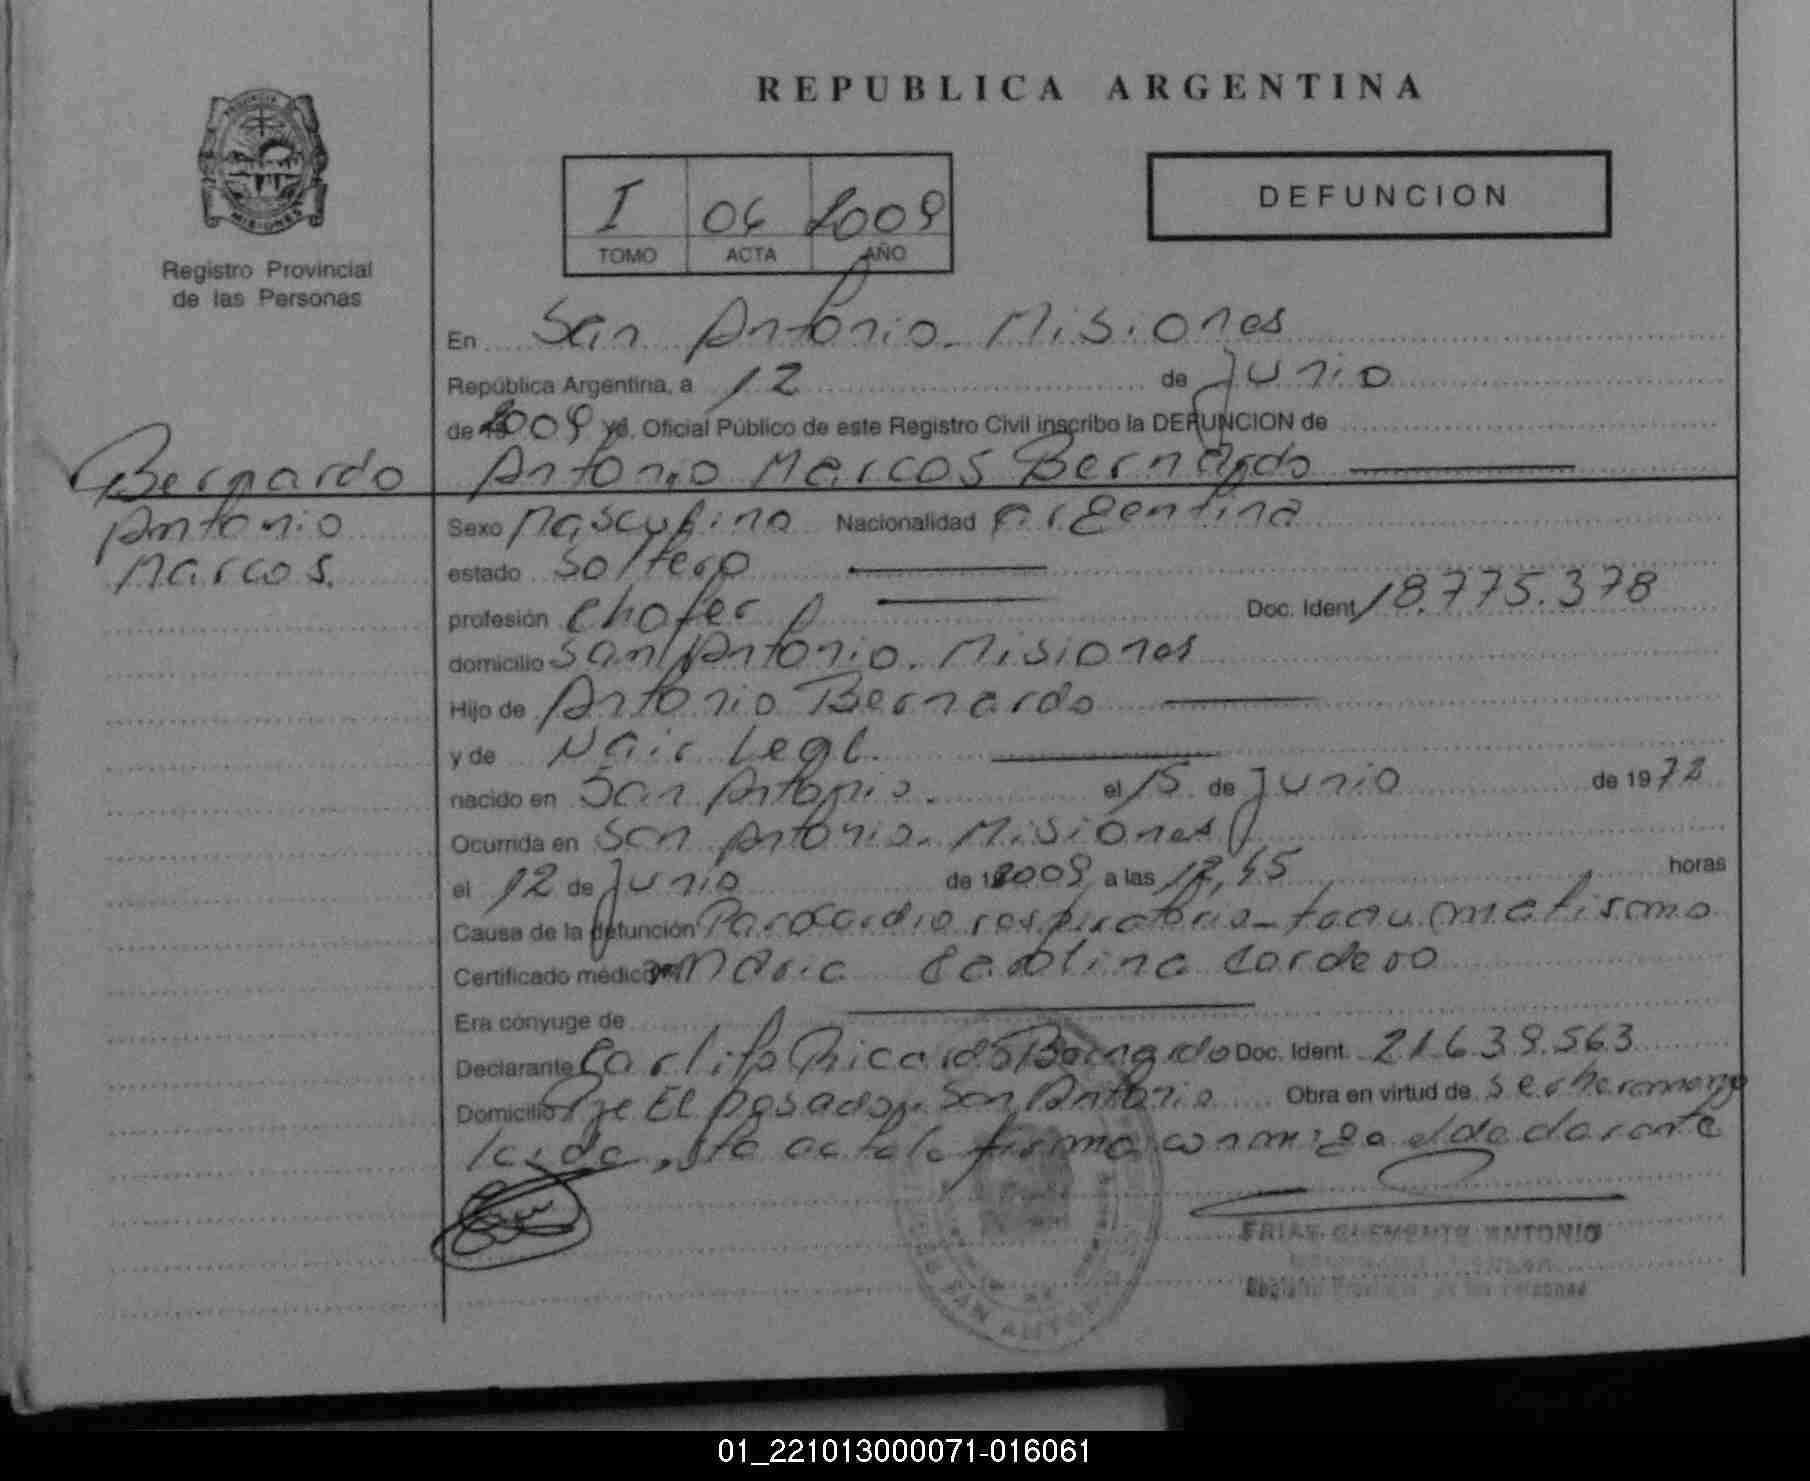 REPUBLICA ARGENTINA
MISIONES
Registro Provincial
de las Personas
I 06 2009
TOMO ACTA AÑO
DEFUNCION
En San Antonio. Misiones
República Argentina, a 12 de Junio
de 2009 yo, Oficial Público de este Registro Civil inscribo la DEFUNCION de
Antonio Marcos Bernardo
Bernardo
Antonio
Marcos.
Sexo Masculino Nacionalidad argentina
estado Soltero
profesión Chofer Doc. Ident. 18.775.378
domicilio San Antonio. Misiones
Hijo de Antonio Bernardo
y de Nair Legl.
nacido en San Antonio. el 15 de Junio de 1972
Ocurrida en San Antonio. Misiones
el 12 de Junio de 2009 a las 12,45 horas
Causa de la defunción Paro Cardio respiratorio - traumatismo
Certificado médico Maria Carolina Cordero
Era cónyuge de
Declarante Carlito Ricardo Bernardo Doc. Ident. 21.639.563
Domicilio Pje El Posado, San Antonio Obra en virtud de ser hermano
leida esta acta la firma conmigo el declarante
FRIAS CLEMENTE ANTONIO
Registro Provincial de las Personas
SAN ANTONIO
01_221013000071-016061